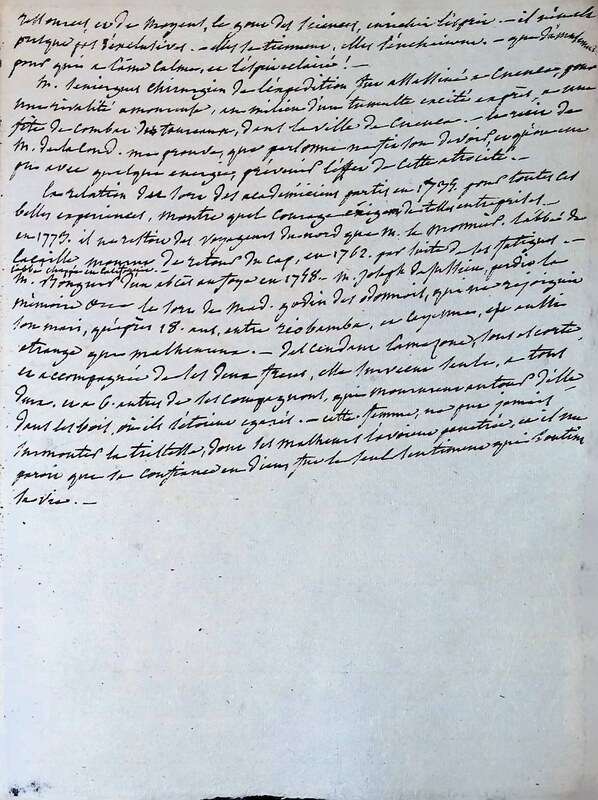 ressources, et de moyens, le goût des sciences, enrichir l'esprit. — il n'en est
presque pas d'exclusives. — elles se tiennent, elles s'enchainent. — que d'
pour qui a l'ame calme, et l'esprit eclairé ! —
M. Seniergues chirurgien de l'expédition fut assassiné a Cuenca, pour
une rivalité amoureuse, au milieu d'un tumulte excité exprès, a une
fête de combat de taureaux, dans la ville de Cuenca. — le récit de
M. de la Cond. me prouve, que personne ne fit son devoir, et qu'on eut
pu avec quelque energie, prévenir l'effet de cette atrocité. —
La relation du sort des academiciens partis en 1735. pour toutes ces
belles experiences, montre quel courage exigent de telles entreprises. —
en 1773. il ne restoit des voyageurs du nord que M. le Monnier. l'abbé de
Lacaille mourut de retour du Cap, en 1762. par suite de ses fatigues. —
l'abbé Chappe en Californie. —
M. Bouguer d'un abcès au foye en 1758. — M. Joseph de Jussieu, perdit la
mémoire le sort de Mad. godin des odonnois, qui ne rejoignit
son mari, qu'après 18. ans, entre reobamba, et Cayenne, est aussi
etrange que malheureux. — descendant l'amazone, sous escorte
et accompagnée de ses deux freres, elle survecut seule, a tous
deux, et a 6. autres de ses compagnons, qui moururent autour d'elle
dans les bois, où ils s'étoient egarés. — cette femme, ne put jamais
surmonter la tristesse, dont ses malheurs l'avoient penetrée, et il me
paroit que sa confiance en dieu, fut le seul sentiment qui soutint
sa vie. —